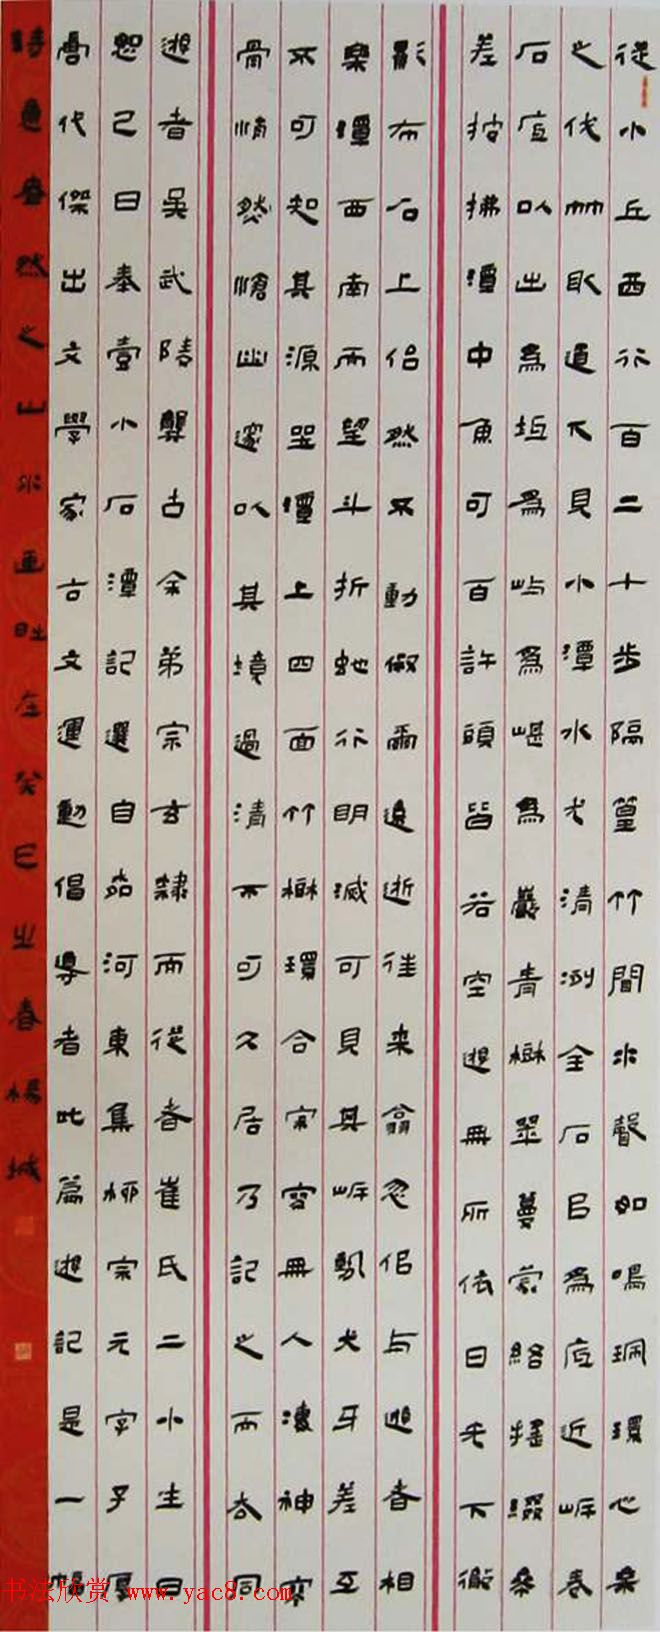 從小丘西行百二十步隔篁竹聞水聲如鳴珮環心樂
之伐竹取道下見小潭水尤清冽全石㠯為底近岸卷
石底以出為坻為嶼為嵁為巖青樹翠蔓蒙絡搖綴參
差披拂潭中魚可百許頭皆若空遊無所依日光下澈
影布石上佁然不動俶爾遠逝往來翕忽佀与遊者相
樂潭西南而望斗折蛇行明滅可見其岸勢犬牙差互
不可知其源坐潭上四面竹樹環合寂寥無人淒神寒
骨悄然愴幽邃以其境過清不可久居乃記之而去同
遊者吳武陵龔古余弟宗玄隸而從者崔氏二小生曰
恕己曰奉壹小石潭記選自
河東集柳宗元字子厚
唐代傑出文學家古文運動倡導者此篇遊記是一幅
詩意盎然之山水畫
在癸巳之春楊
书法欣赏 www.yac8.com